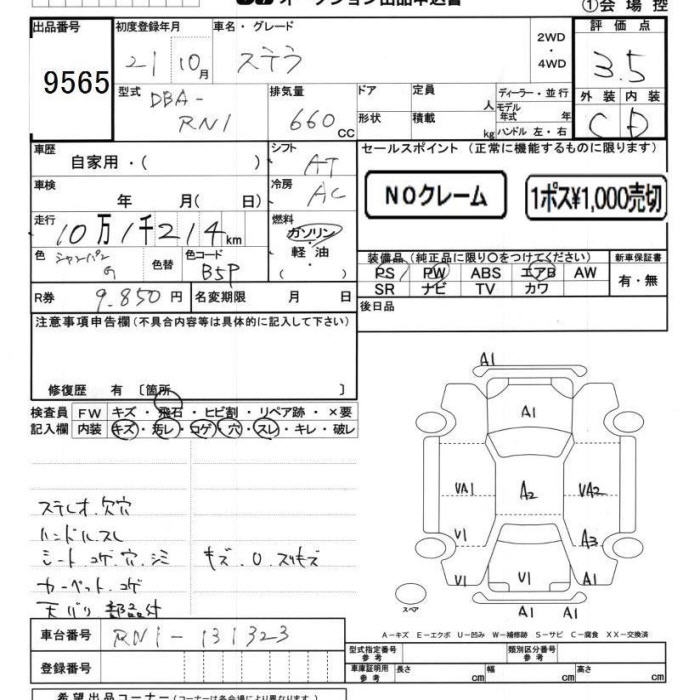 オークション出品申込書
①会場控
出品番号
9565
初度登録年月
21 10月
車名・グレード
ステラ
2WD
・
4WD
評価点
3.5
型式
DBA-
RN1
排気量
660 CC
ドア
定員
人
形状
積載
kg
ディーラー・並行
モデル年式 年
ハンドル 左・右
外装 内装
C D
車歴
自家用・( )
シフト
AT
セールスポイント (正常に機能するものに限ります)
NOクレーム
1ポス¥1,000売切
車検
年 月( 日)
冷房
AC
走行
10万1千214km
燃料
ガソリン
・
軽油
色
シャンパンG
色替
色コード
B5P
装備品(純正品に限り○をつけてください)
PS PW ABS エアB AW
SR ナビ TV カワ
新車保証書
有・無
R券
9,850円
名変期限 月 日
後日品
注意事項申告欄(不具合内容等は具体的に記入して下さい)
修復歴 有 〔箇所 〕
検査員 FW キズ・飛石・ヒビ割・リペア跡・×要
記入欄 内装 キズ・汚レ・コゲ・穴・スレ・キレ・破レ
ステレオ.欠穴
ハンドル.スレ
シート.コゲ.穴.シミ
カーペット.コゲ
天バリ 部品付
A1
A1
VA1
A2
VA2
V1
A3
V1
V1
A1
A1
A1
スペア
A－キズ E－エクボ U－凹み W－補修跡 S－サビ C－腐食 XX－交換済
車台番号
RN1-131323
登録番号
型式指定番号
参考
類別区分番号
参考
車庫証明用
参考
長さ cm 幅 cm 高さ cm
希望出品コーナー(コーナーは各会場により異なります。)